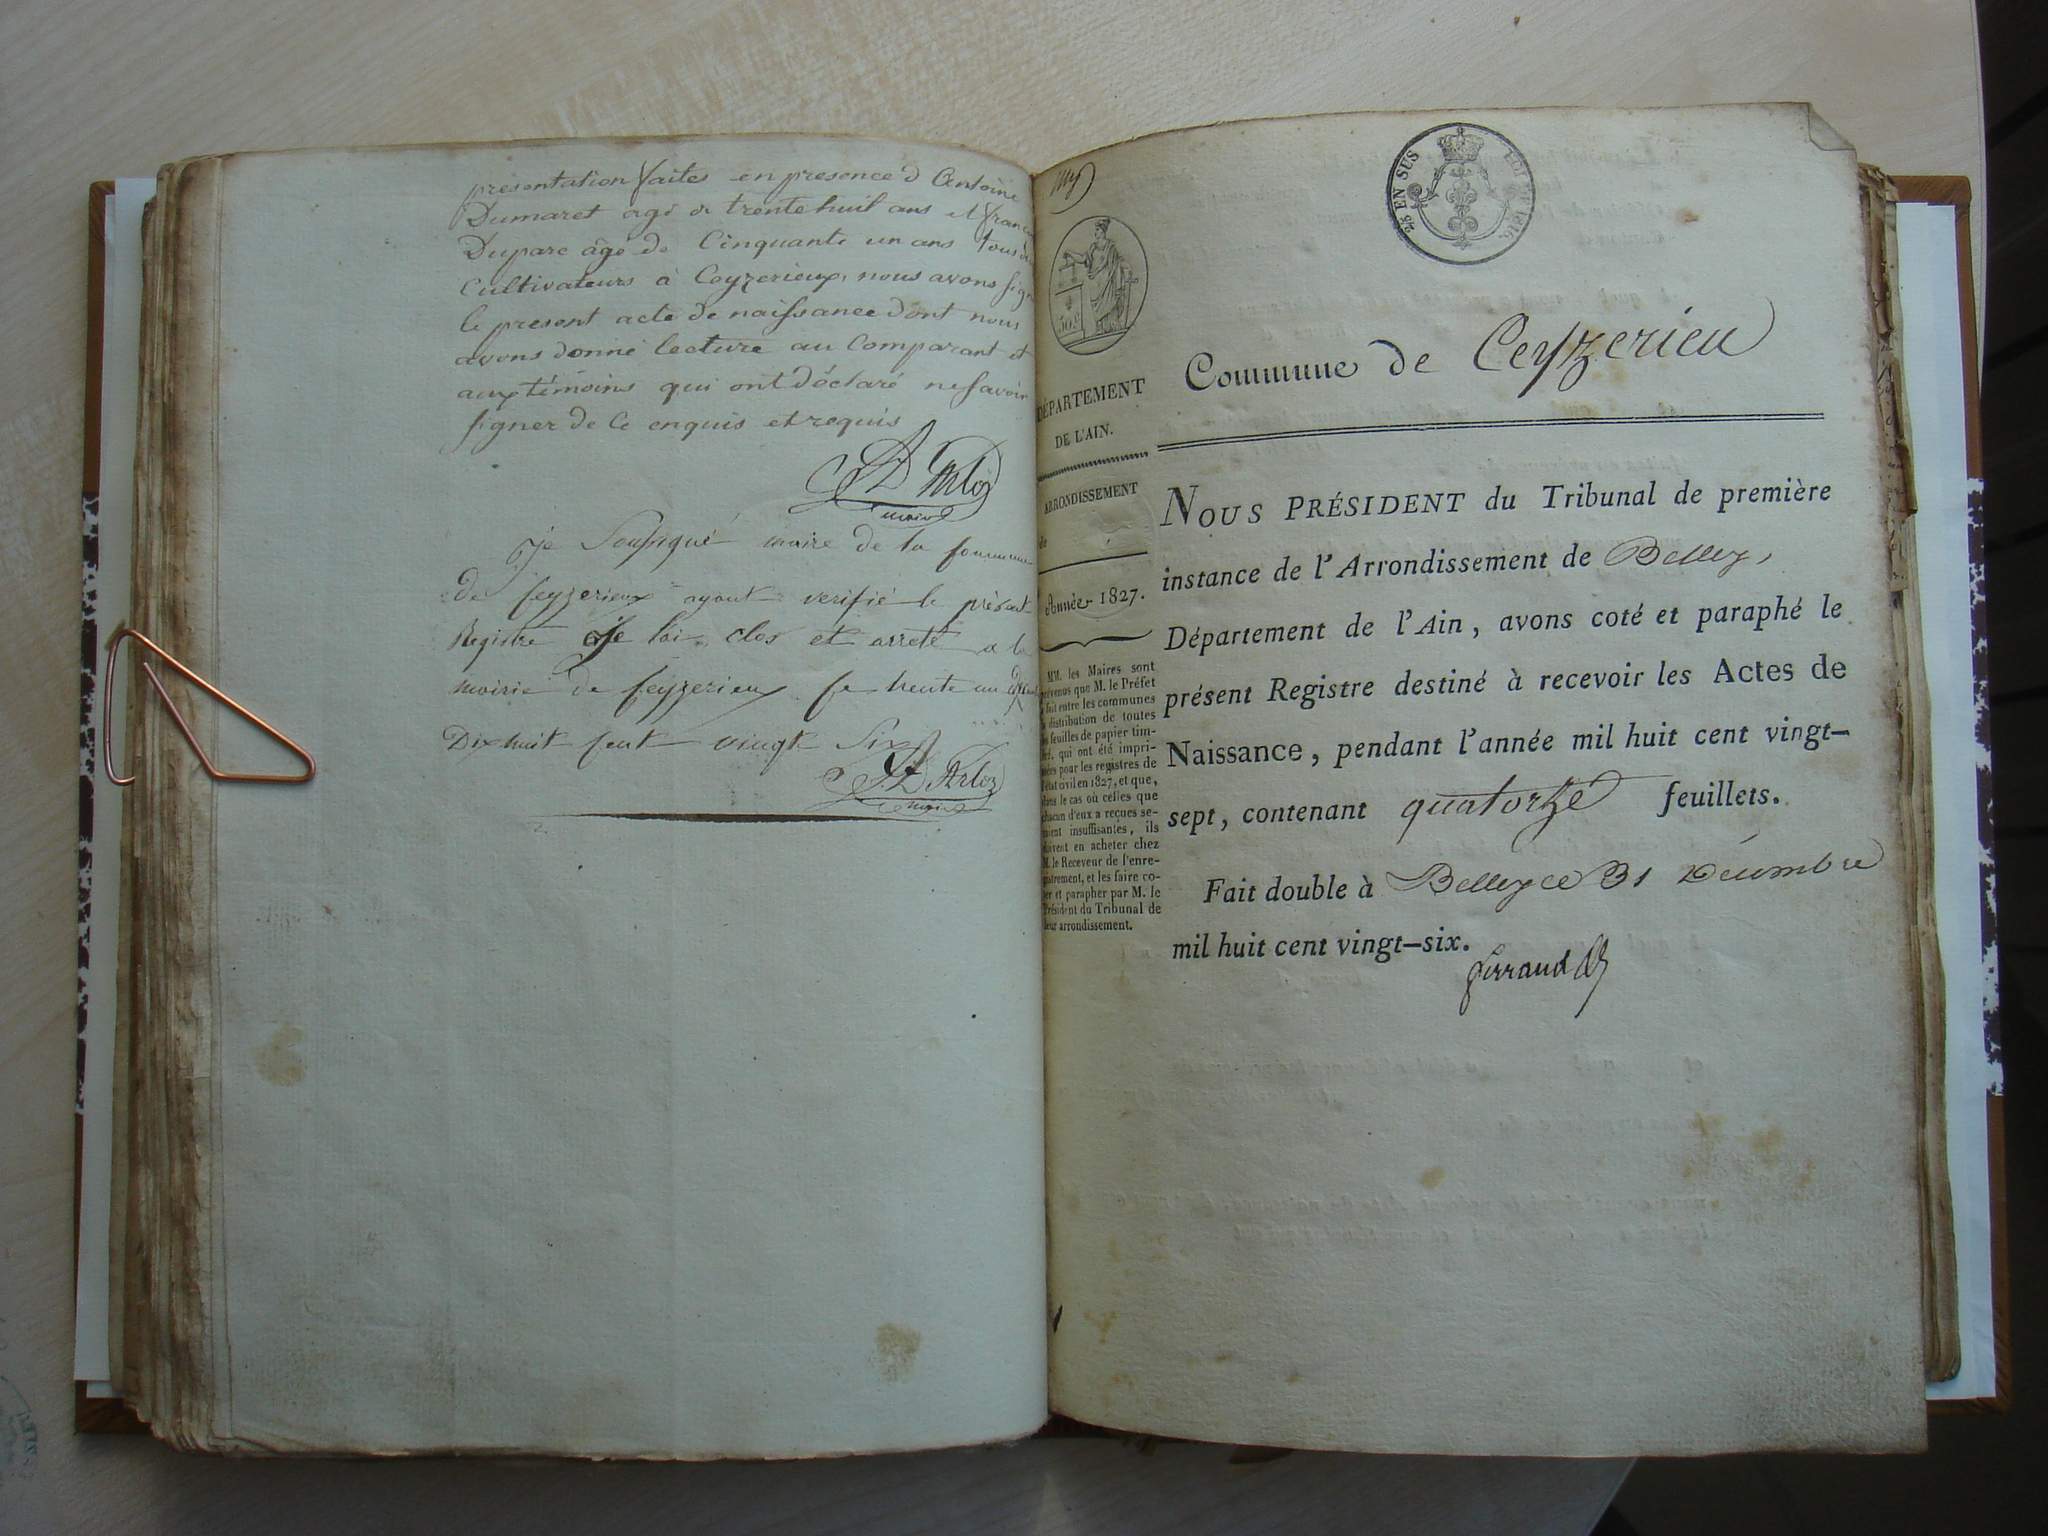 presentation faites en presence d Antoine
Dumaret agé de trente huit ans et
Duparc âgé de Cinquante un ans tous
Cultivateurs à Ceyzerieux, nous avons
le present acte de naissance dont nous
avons donné lecture au Comparant et
aux témoins qui ont déclaré ne savoir
signer de ce enquis et requis
D Arloz
maire
Je Soussigné maire de la Commune
de Ceyzerieux ayant verifié le présent
Registre Je l'ai clos et arreté a la
mairie de Ceyzerieu le trente un
Dix huit Cent vingt Six
D Arloz
maire
EN SUS
50 c
Commune de Ceyzerieu
DÉPARTEMENT
DE L'AIN.
ARRONDISSEMENT
de
Année 1827.
MM. les Maires sont
prévenus que M. le Préfet
a fait entre les communes
la distribution de toutes
les feuilles de papier tim-
bré, qui ont été impri-
mées pour les registres de
l'état civil en 1827, et que,
dans le cas où celles que
chacun d'eux a reçues se-
raient insuffisantes, ils
doivent en acheter chez
M. le Receveur de l'enre-
gistrement, et les faire co-
ter et parapher par M. le
Président du Tribunal de
leur arrondissement.
NOUS PRÉSIDENT du Tribunal de première
instance de l'Arrondissement de Belley,
Département de l'Ain, avons coté et paraphé le
présent Registre destiné à recevoir les Actes de
Naissance, pendant l'année mil huit cent vingt-
sept, contenant quatorze feuillets.
Fait double à Belley ce 31 Décembre
mil huit cent vingt-six.